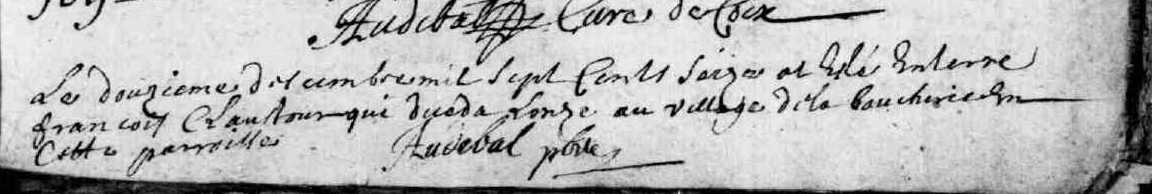 Audebal Curé de Coix
Le douzieme descembre mil sept Cents Seize at Esté Enterre
francois Chautour qui dyceda Lonze au village de la boucherie En
Cette parroisse Audebal pbre